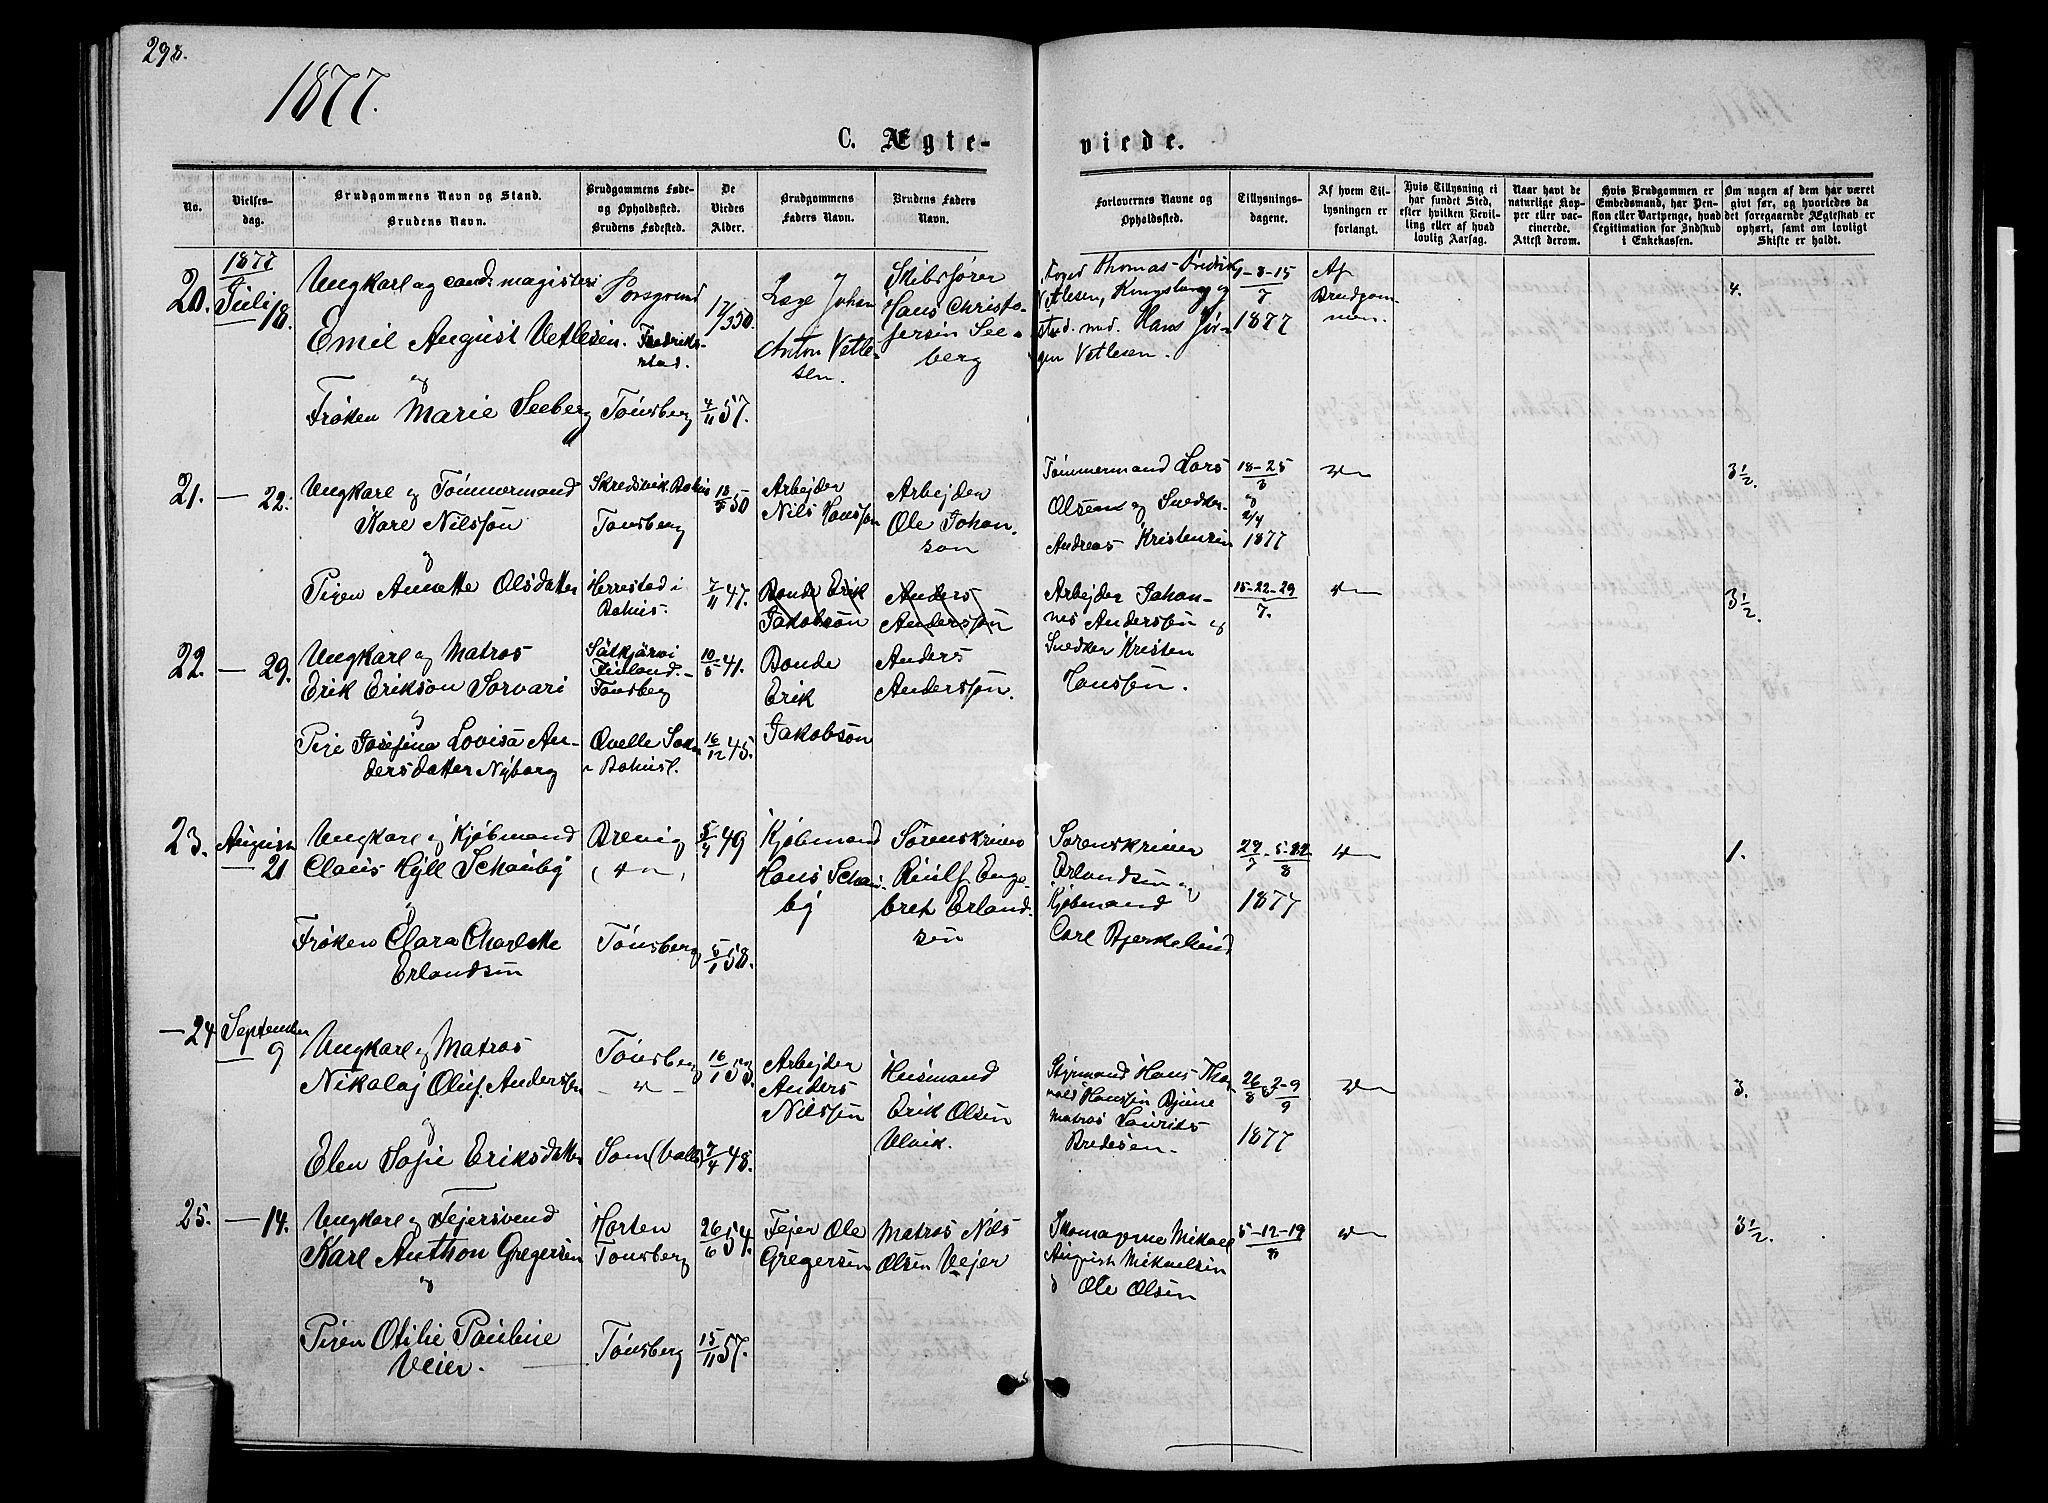 298.
1877.
C. Ægte-
viede.
No.
Vielses-
dag.
Brudgommens Navn og Stand.
Brudens Navn.
Brudgommens Føde-
og Opholdssted.
Brudens Fødested.
De
Viedes
Alder.
Brudgommens
Faders Navn.
Brudens Faders
Navn.
Forlovernes Navne og
Opholdssted.
Tillysnings-
dagene.
Af hvem Til-
lysningen er
forlangt.
Hvis Tillysning ei
har fundet Sted,
efter hvilken Bevil-
ling eller af hvad
lovlig Aarsag.
Naar havt de
naturlige Kop-
per eller vac-
cinerede.
Attest derom.
Hvis Brudgommen er
Embedsmand, har Pen-
sion eller Vartpenge, hvad
Legitimation for Indskud
i Enkekassen.
Om nogen af dem har været
givt før, og hvorledes da
det foregaaende Ægteskab er
ophørt, samt om lovligt
Skifte er holdt.
20.
1877
Juli
18.
Ungkarl og cand. magisteri
Emil August Vetlesen.
og
Frøken Marie Seeberg
Porsgrund
Fredriks-
stad.
Tönsberg
17/3 50.
4/11 57.
Lage Johan
Anton Vetle-
sen.
Skibsfører
Hans Christo-
fersen See-
berg
Foged Thomas Fredrik
Vetlesen, Kongsberg og
stud. med. Hans Jør-
gen Vetlesen.
1-8-15
7
1877
Af
Brudgom-
men.
4.
21. — 22.
Ungkarl og Tömmermand
Karl Nilssön
og
Pigen Annette Olsdatter
Skredsvik Bohus
Tonsberg
Herrestad i
Bohus.
50
7/11 47.
Arbejder
Nils Hansson
Arbejder
Ole Johan-
son
Tømmermand Lars
Olsen og Snedker
Andreas Kristensen
18-25
3
og
2/4
1877
3½.
22. — 29.
Ungkarl og Matros
Erik Erikson Sorvari
og
Pige Josefina Lovisa An-
dersdatter Nyborg
Finland.
Tönsberg
Qvelle Sokn
i Bohusl.
10/5 41.
16/12 45.
Bonde Erik
Jakobsön
Bonde
Erik
Jakobsön
Anders
Anderssön
Anders
Anderssön.
Arbejder Johan-
nes Andersen og
Snedker Kristen
Hanssen.
15-22-29
7.
3½.
23.
August
— 21
Ungkarl og Kjøbmand
Claus Hyll Schanby
og
Frøken Clara Charlotte
Erlandsen
Brevig
Tönsberg
5/4 49
5/1 58.
Kjøbmand
Hans Schan-
by
Sorenskriver
Rinlf Enge-
bret Erland-
sen
Sorenskriver
Erlandsen og
Kjøbmand
Carl Bjerkelund
1877
1.
— 24
September
— 9
Ungkarl og Matros
Nikolaj Oluf Andersen
og
Elen Sofie Eriksdatter
Tönsberg
Som (Valle)
16/1 53.
7/4 48.
Arbejder
Anders
Nilssen
Husmand
Erik Olsen
Ulvik.
Styrmand Hans Tho-
vald Hanssen Bjune
Matros Laurits
Bredesen.
26/8 2-9/9
1877
3.
25. — 14.
Ungkarl og Fejersvend
Karl Anthon Gregersen
og
Pigen Otilie Pauline
Veier.
Horten
Tonsberg
Tönsberg
26/6 54.
15/11 57.
Fejer Ole
Gregersen
Matros Nils
Olsen Vejer
Skomagerne Mikael
August Mikaelsen
Ole Olsen
5-12-19
8
3½.